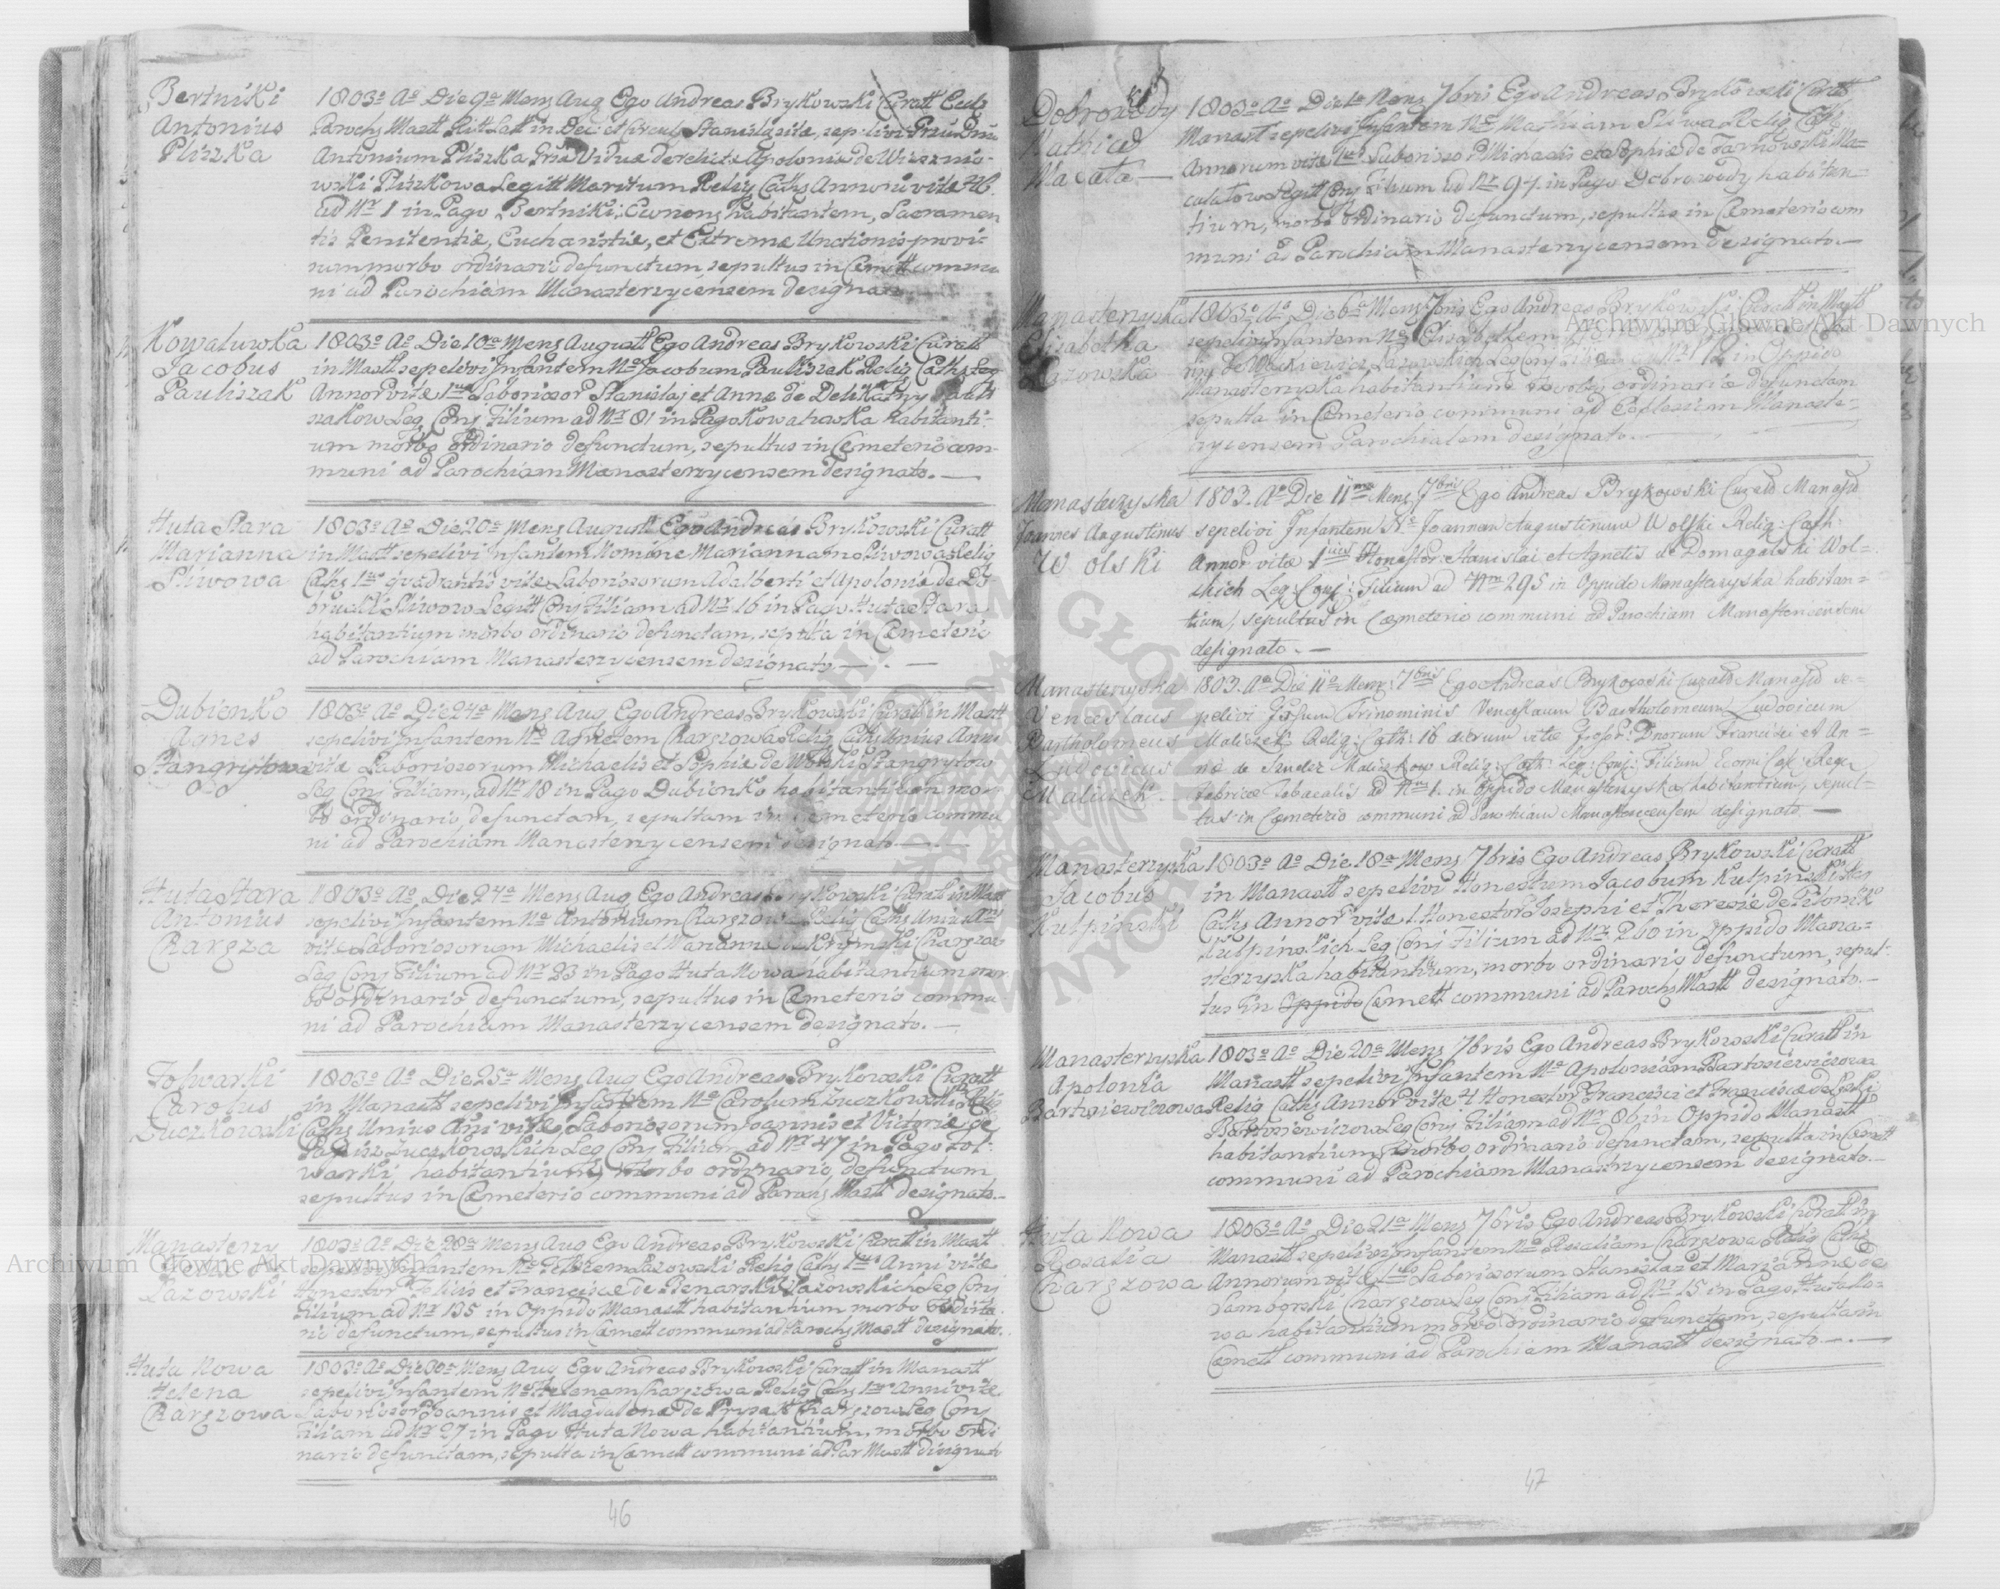 Bertniki
Antonius
Pliszka
1803o Ao Die 9a Mens Aug Ego Andreas Brykowski Curatt Eccle
Paroch Mastt Ritt Latt in Dec: et Circulo Stanislai sitae, sepelivi
Antonium Pliszka Viduae derelictae Apoloniae de Wisznio-
wski Pliszkowa Legitt Maritum Relig Cath Annoru vitae
ad Nr 1 in Pago Bertniki, habitantem, Sacramen
tis Penitentiae, Eucharistiae, et Extremae Unctionis provi-
sum morbo ordinario defunctum, sepultus in Cemett commu
ni ad Parochiam Manasterzycensem designato
Kowaluwka
Jacobus
Pauliszak
1803o Ao Die 10a Mens Augustt Ego Andreas Brykowski Curatt
in Mastt sepelivi Infantem No Jacobum Pauliszak Relig Cath
Annor vitae 1us Laboriosor Stanislaj et Annae de Delikatny Pauli
szakow Leg Conj Filium ad Nr 81 in Pago Kowaluwka habitanti-
um morbo Ordinario defunctum, sepultus in Cemeterio com-
muni ad Parochiam Manasterzycensem designato.—
Huta Stara
Marianna
Sliwowa
1803o Ao Die 20a Mens Augustt Ego Andreas Brykowski Curatt
in Mastt sepelivi Infantem Nomine Mariannam Sliwowa Relig
Cath 1us quadrantis vitae Laboriosorum Adalberti et Apoloniae de Do
brucki Sliwow Legitt Conj Filiam ad Nr 16 in Pago Huta Stara
habitantium morbo ordinario defunctam, sepulta in Cemeterio
ad Parochiam Manasterzycensem designato —.—
Dubienko
Agnes
Stangrytowa
1803o Ao Die 24a Mens Aug Ego Andreas Brykowski Curatt in Mastt
sepelivi Infantem No Agnetem Relig Cath Unius Anni
vitae Laboriosorum Michaelis et Sophiae de Wolski Stangrytow
Leg Conj Filiam, ad Nr 18 in Pago Dubienko habitantium mor-
bo ordinario defunctam, sepultam in Cemeterio commu
ni ad Parochiam Manasterzycensem designato —.—
Huta Stara
Antonius
Chargza
1803o Ao Die 24a Mens Aug Ego Andreas Brykowski Curatt in Mast
sepelivi Infantem No Antonium Relig Cath Unius Ani
vitae Laboriosorum Michaelis et Mariannae de Chargzow
Leg Conj Filium ad Nr 23 in Pago Huta Nowa habitantium mor
bo ordinario defunctum, sepultus in Cemeterio commu
ni ad Parochiam Manasterzycensem designato.—
Folwarki
Carolus
Luczkowski
1803o Ao Die 25a Mens Aug Ego Andreas Brykowski Curatt
in Manastt sepelivi Infantem No Carolum Luczkowski Relig
Cath Unius Ani vitae Laboriosorum Joannis et Victoriae de
Luczkowskich Leg Conj Filium ad Nr 47 in Pago Fol-
warki habitantium, Morbo ordinario defunctum
sepultus in Cemeterio communi ad Paroch Mastt designato.—
Manasterzy
Felix
Lazowski
1803o Ao Die 28a Mens Aug Ego Andreas Brykowski Curatt in Mastt
sepelivi Infantem No Felicem Lazowski Relig Cath 1us Anni vitae
Honestor Felicis et Franciscae de Benarski Lazowskich Leg Conj
Filium ad Nr 135 in Oppido Manastt habitantium morbo Ordina
rio defunctum, sepultus in Cemett communi ad Paroch Mastt designato.
Huta Nowa
Helena
Chargzowa
1803o Ao Die 30a Mens Aug Ego Andreas Brykowski Curatt in Manastt
sepelivi Infantem No Helenam Chargzowa Relig Cath 1us Anni vitae
Laboriosor Joannis et Magdalenae de Prysak Chargzow Leg Conj
Filiam ad Nr 27 in Pago Huta Nowa habitantium, morbo Ordi
nario defunctam, sepulta in Cemett communi ad Par Mastt designato
46
Dobrowody
Mathias
Macala —
1803o Ao Die 1a Mens 7bris Ego Andreas Brykowski Curatt
Manast sepelivi Infantem No Mathiam Relig Cath
Annorum vitae Laborioso Michaelis et Sophiae de Tarnowski Ma-
calatow Legitt Conj Filium ad Nr 94 in Pago Dobrowody habitan-
tium, morbo Ordinario defunctum, sepultus in Cemeterio com
muni ad Parochiam Manasterzycensem designato.—
Manasterzyska
Elizabetha
Lazowska
1803o Ao Die 6a Mens 7bris Ego Andreas Brykowski Curatt in Mastt
sepelivi Infantem No Elisabethem
de Mackiewicz Lazowskich Leg Conj Filiam ad Nr 112 in Oppido
Manasterzyska habitantium morbo ordinario defunctam
sepulta in Cemeterio communi ad Ecclesiam Manaste-
rzycensem Parochialem designato.
Manasterzyska
Joannes Augustinus
Wolski
1803. Ao Die 11ma Mens 7bris Ego Andreas Brykowski Curatt Manast
sepelivi Infantem No Joannem Augustinum Wolski Relig: Cath:
Annor vitae 1ius Honestor: Stanislai et Agnetis de Domagalski Wol-
skich Leg: Conj: Filium ad Nrm 295 in Oppido Manasterzyska habitan-
tium, sepultus in Cemeterio communi ad Parochiam Manastercensem
designato.—
Manasterzyska
Venceslaus
Bartholomeus
Ludovicus
Maliczek.
1803. Ao Die 11a Mens: 7bris Ego Andreas Brykowski Curatt Manast se-
pelivi Trinominis Venceslaum Bartholomeum Ludovicum
Maliczek Relig: Cath: 16 dierum vitae Dnorum Francisci et An-
nae de Sander Maliczkow Relig: Cath: Leg: Conj: Filium
fabricae Tabacalis ad Nrm 1. in Oppido Manasterzyska habitantium, sepul-
tus in Cemeterio communi ad Parochiam Manastercensem designato —
Manasterzyska
Jacobus
Kulpinski
1803o Ao Die 18a Mens 7bris Ego Andreas Brykowski Curatt
in Manastt sepelivi Honestum Jacobum Kulpinski Relig
Cath Annor vitae 1. Honestor Josephi et Theresiae de Pitonik
Kulpinskich Leg Conj Filium ad Nr 260 in Oppido Mana-
sterzyska habitantium, morbo ordinario defunctum, sepul-
tus in Oppido Cemett communi ad Paroch Mastt designato.—
Manasterzyska
Apolonia
Bartosiewiczowa
1803o Ao Die 20a Mens 7bris Ego Andreas Brykowski Curatt in
Manastt sepelivi Infantem No Apoloniam Bartosiewiczowa
Relig Cath Annor vitae 4 Honestor Francisci et Franciscae de
Bartosiewiczow Leg Conj Filiam ad Nr 86 in Oppido Manastt
habitantium, morbo ordinario defunctam, sepulta in Cemett
communi ad Parochiam Manasterzycensem designato.—
Huta Nowa
Rosalia
Chargzowa
1803o Ao Die 21a Mens 7bris Ego Andreas Brykowski Curatt in
Manastt sepelivi Infantem No Rosaliam Chargzowa Relig Cath
Annorum vitae Laboriosorum Stanislai et Mariannae de
Samborski Chargzow Leg Conj Filiam ad Nr 15 in Pago Huta No-
wa habitantium morbo Ordinario defunctam, sepultam
Cemett communi ad Parochiam Manastt designato —.—
47
Archiwum Główne Akt Dawnych
Archiwum Główne Akt Dawnych
ARCHIWUM GŁÓWNE AKT DAWNYCH